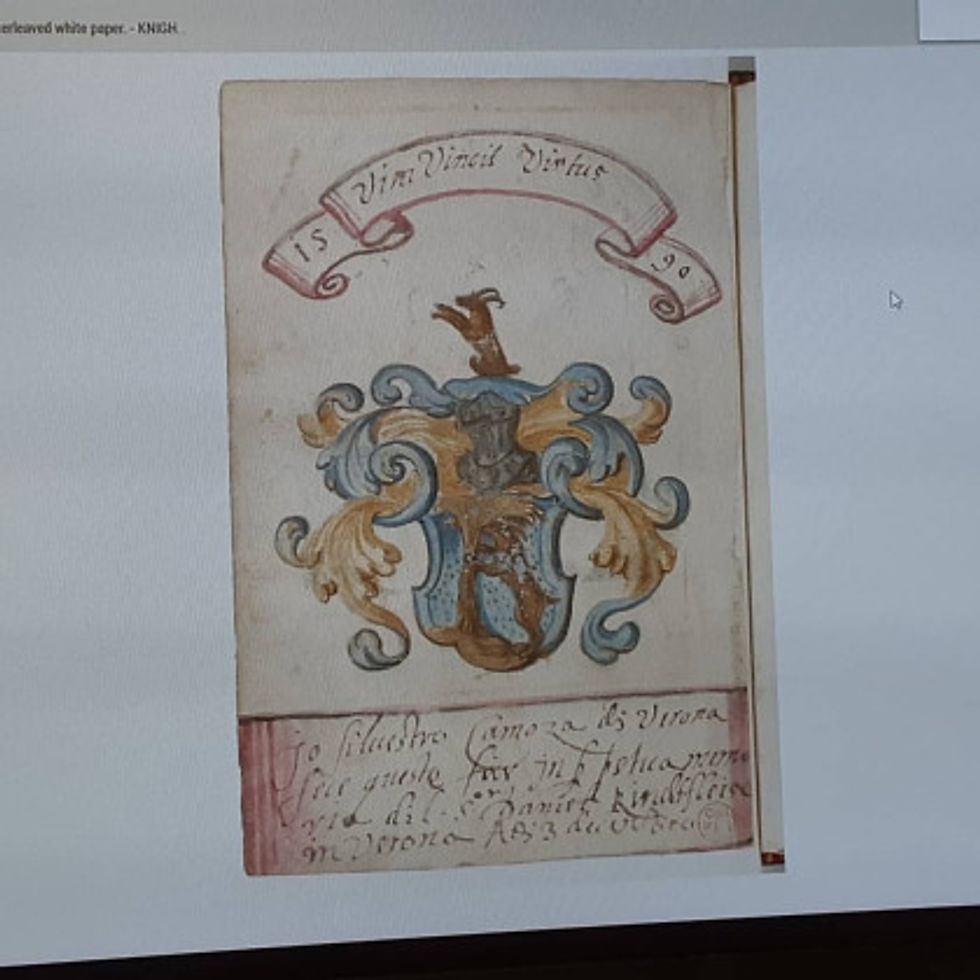 erleaved white paper. - KNIGH...
Vim Vincit Virtus
15 90
Jo siluestro Camoza di Verona
fece questo far in perpetua memo
ria dil Sor Daniel
in Verona Adi 3 du